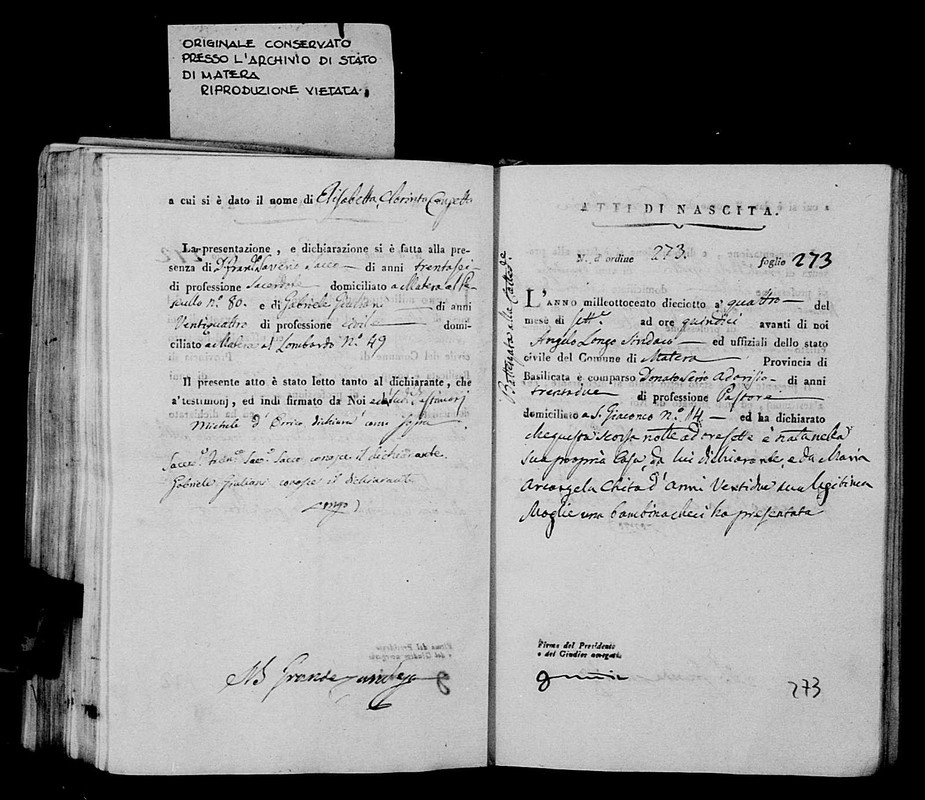 ORIGINALE CONSERVATO
PRESSO L'ARCHIVIO DI STATO
DI MATERA
RIPRODUZIONE VIETATA.
a cui si è dato il nome di Elisabetta,
La presentazione, e dichiarazione si è fatta alla pre-
senza di Saverio Sacco di anni trentasei
di professione Sacerdote domiciliato a Matera al
nº. 80. e di Gabriele Giuliani di anni
Ventiquattro di professione civile domi-
ciliato a Matera al Lombardo Nº. 49
Il presente atto è stato letto tanto al dichiarante, che
a'testimonj, ed indi firmato da Noi
Michele d'Errico dichiara come sopra
Sacco conosce il dichiarante.
Gabriele Giuliani conosce il dichiarante
Longo
ATTI DI NASCITA.
N. d'ordine 273. foglio 273
L'ANNO milleottocento dieciotto a' quattro del
mese di Sett.e ad ore quindici avanti di noi
Angelo Longo Sindaco ed uffiziali dello stato
civile del Comune di Matera Provincia di
Basilicata è comparso Donato di anni
trentadue di professione Pastore
domiciliato a S. Giacomo nº. 14 ed ha dichiarato
che questa scorsa notte ad ore sette è nata nella
sua propria Casa, da lui dichiarante, e da Maria
Arcangela Chita d'Anni Ventidue sua legitima
Moglie una bambina che ci ha presentata
Firma del Presidente
o del Giudice delegato
273